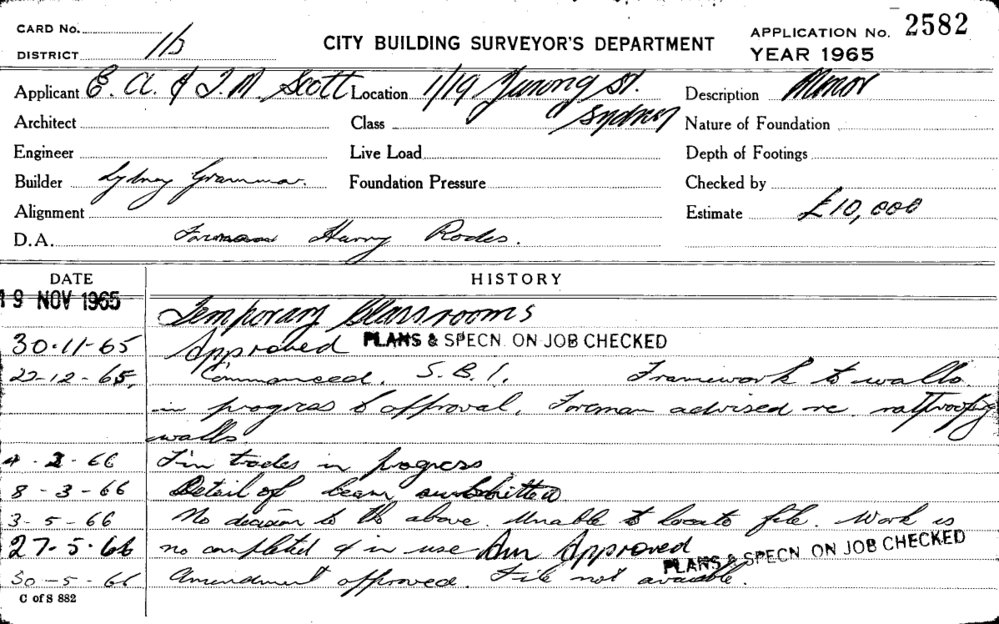 CARD No.
DISTRICT 11b
CITY BUILDING SURVEYOR'S DEPARTMENT
APPLICATION No. 2582
YEAR 1965
Applicant E. A. & T. M. Scott Location 1/19 Yurong St. Sydney Description Minor
Architect Class Nature of Foundation
Engineer Live Load Depth of Footings
Builder Sydney Grammar. Foundation Pressure Checked by
Alignment Estimate £10,000
D.A. Foreman Harry Rodes.
DATE HISTORY
19 NOV 1965 Temporary Classrooms
30-11-65 Approved PLANS & SPECN. ON JOB CHECKED
22-12-65, Commenced. S.B.I. Framework to walls
in progress to approval. Foreman advised re ratproofing
walls
4-2-66 Fin trades in progress
8-3-66 Detail of beam submitted
3-5-66 No decision to the above. Unable to locate file. Work is
27-5-66 no completed & in use Am Approved PLANS & SPECN ON JOB CHECKED
30-5-66 Amendment approved. File not available.
C of S 882